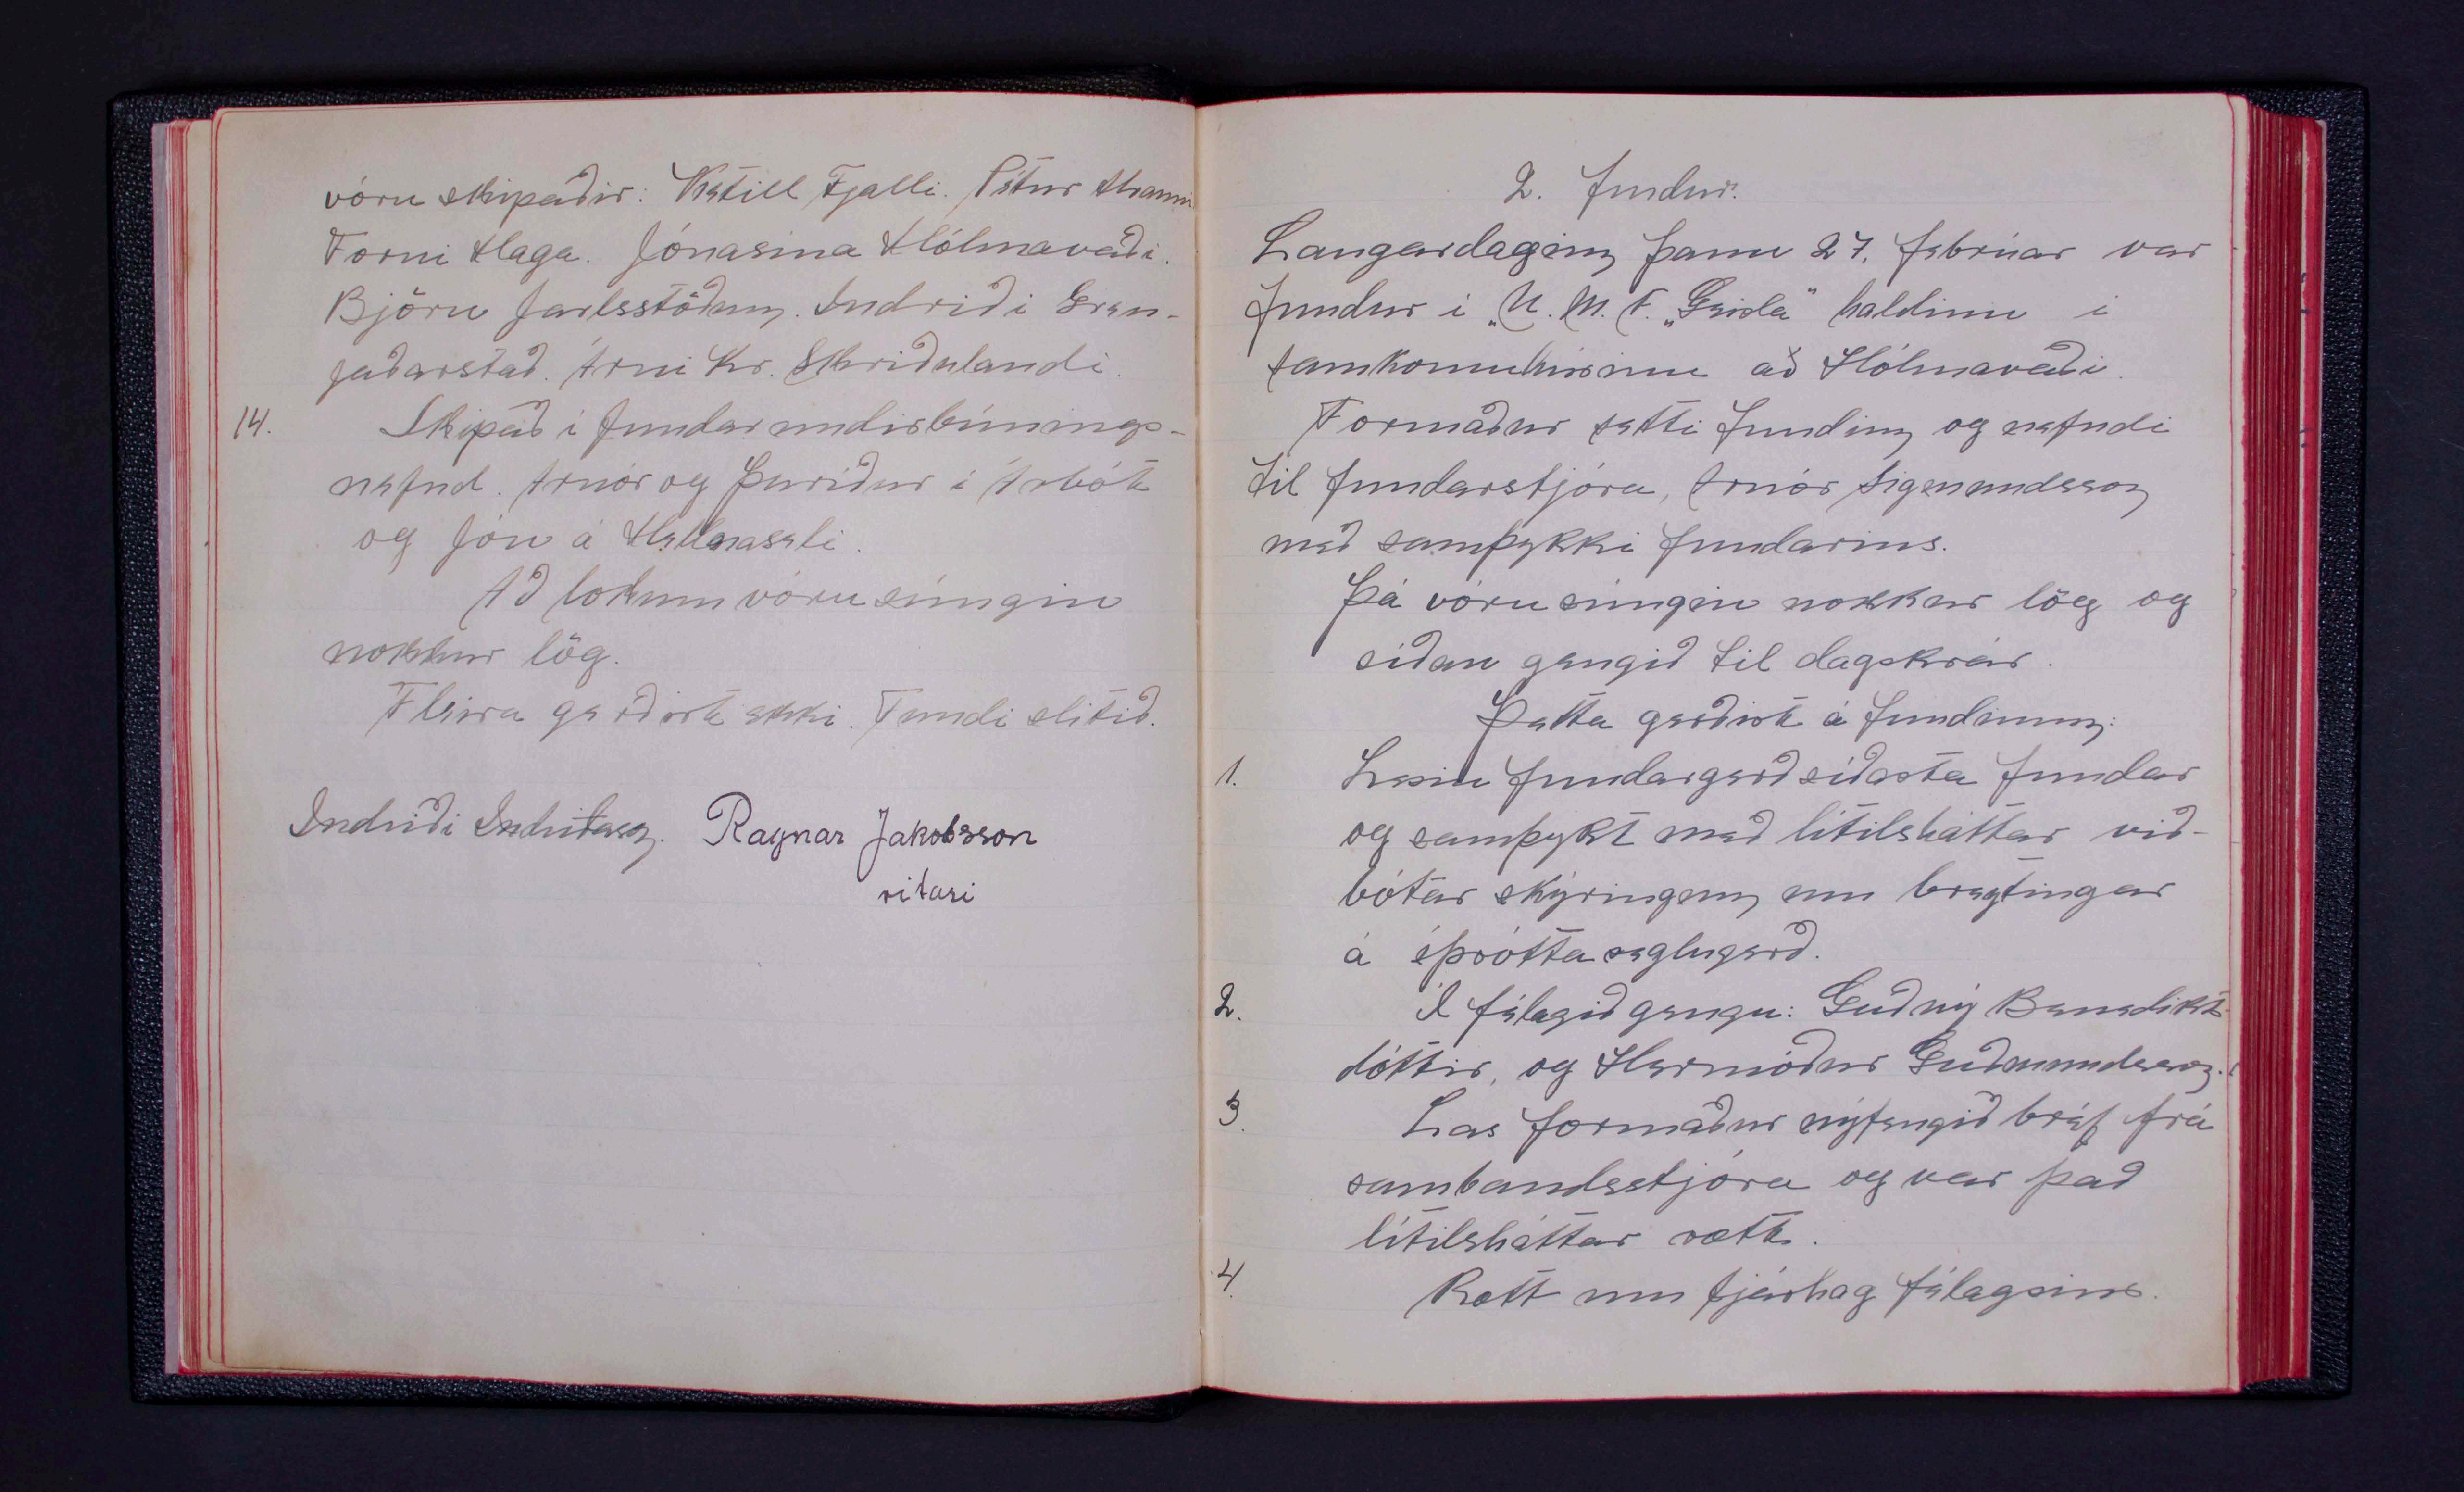 vóru skipaðir: Ketill Fjalli. Pétur Hrauni
Forni Haga. Jónasína Hólmavaði.
Björn Jarlsstöðum. Indriði Gren-
jaðarstað. Árni Kr. Skriðulandi.
14. Skipað í fundarundirbúnings-
nefnd. Arnór og Þuríður í Árbót
og Jón á Hellnaseli.
Að lokum vóru súngin
nokkur lög.
Fleira gerðist ekki. Fundi slitið.
Indriði Indriðason. Ragnar Jakobsson
ritari
2. fundur.
Laugardaginn þann 27. febrúar var
fundur í „U. M. F. „Geisla" haldinn í
samkomuhúsinu að Hólmavaði.
Formaður setti fundinn og nefndi
til fundarstjóra, Arnór Sigmundsson
með samþykki fundarins.
Þá vóru súngin nokkur lög og
síðan gengið til dagskrár.
Þetta gerðist á fundinum:
1. Lesin fundargerð síðasta fundar
og samþykt með lítilsháttar við-
bótar skýringum um breytingar
á íþróttareglugerð.
2. Í félagið gengu: Guðný Benedikts-
dóttir, og Hermóður Guðmundsson.
3. Las formaður nýfengið bréf frá
sambandsstjóra og var það
lítilsháttar rætt.
4. Rætt um fjárhag félagsins.